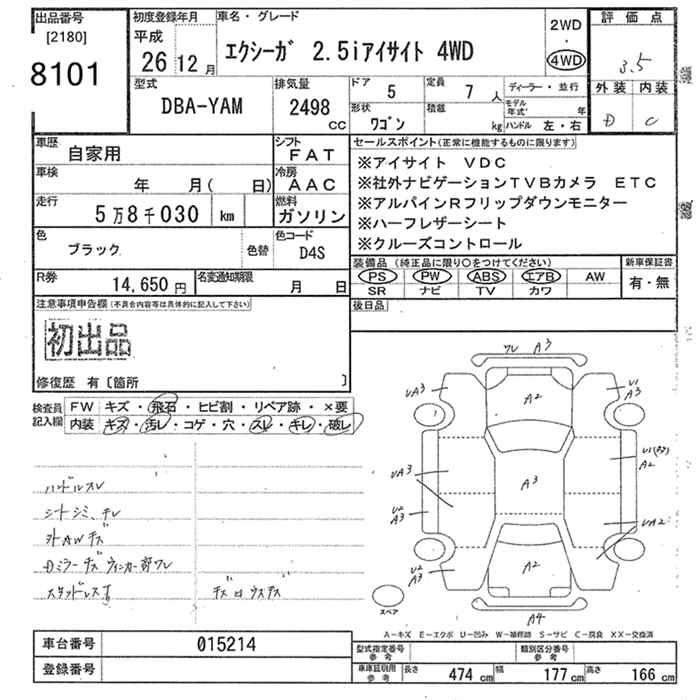 出品番号
[2180]
8101
初度登録年月
平成
26 12 月
車名・グレード
エクシーガ 2.5iアイサイト 4WD
2WD
・
4WD
評価点
3.5
外装 内装
D C
型式
DBA-YAM
排気量
2498
CC
ドア
5
定員
7 人
ディーラー・並行
形状
ワゴン
積載
kg
モデル年式 年
ハンドル 左・右
車歴
自家用
シフト
FAT
車検
年 月( 日)
冷房
AAC
走行
5万8千030 km
燃料
ガソリン
色
ブラック
色替
色コード
D4S
R券
14,650 円
名変通知期限
月 日
セールスポイント(正常に機能するものに限ります)
※アイサイト VDC
※社外ナビゲーションTVBカメラ ETC
※アルパインRフリップダウンモニター
※ハーフレザーシート
※クルーズコントロール
装備品 (純正品に限り○をつけてください)
PS PW ABS エアB AW
SR ナビ TV カワ
新車保証書
有・無
後日品
注意事項申告欄(不具合内容等は具体的に記入して下さい)
初出品
修復歴 有〔箇所 〕
検査員記入欄
FW キズ・飛石・ヒビ割・リペア跡・×要
内装 キズ・汚レ・コゲ・穴・スレ・キレ・破レ
ハンドルスレ
シートシミ、チレ
外AWキズ
Dミラーキズ ウィンカー部ワレ
キズ凹ウスキズ
ワレ A3
UA3
A2
U1
A3
UA3
A3
U1
A2
U2
A3
UA2
U2
A3
A2
A4
スペア
A―キズ E―エクボ U―凹み W―補修跡 S―サビ C―腐食 XX―交換済
車台番号
015214
登録番号
型式指定番号
参考
類別区分番号
参考
車庫証明用
参考
長さ 474 cm 幅 177 cm 高さ 166 cm